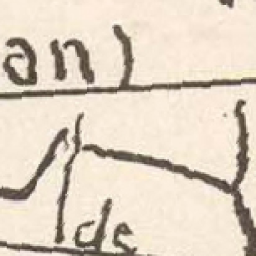 an)
de